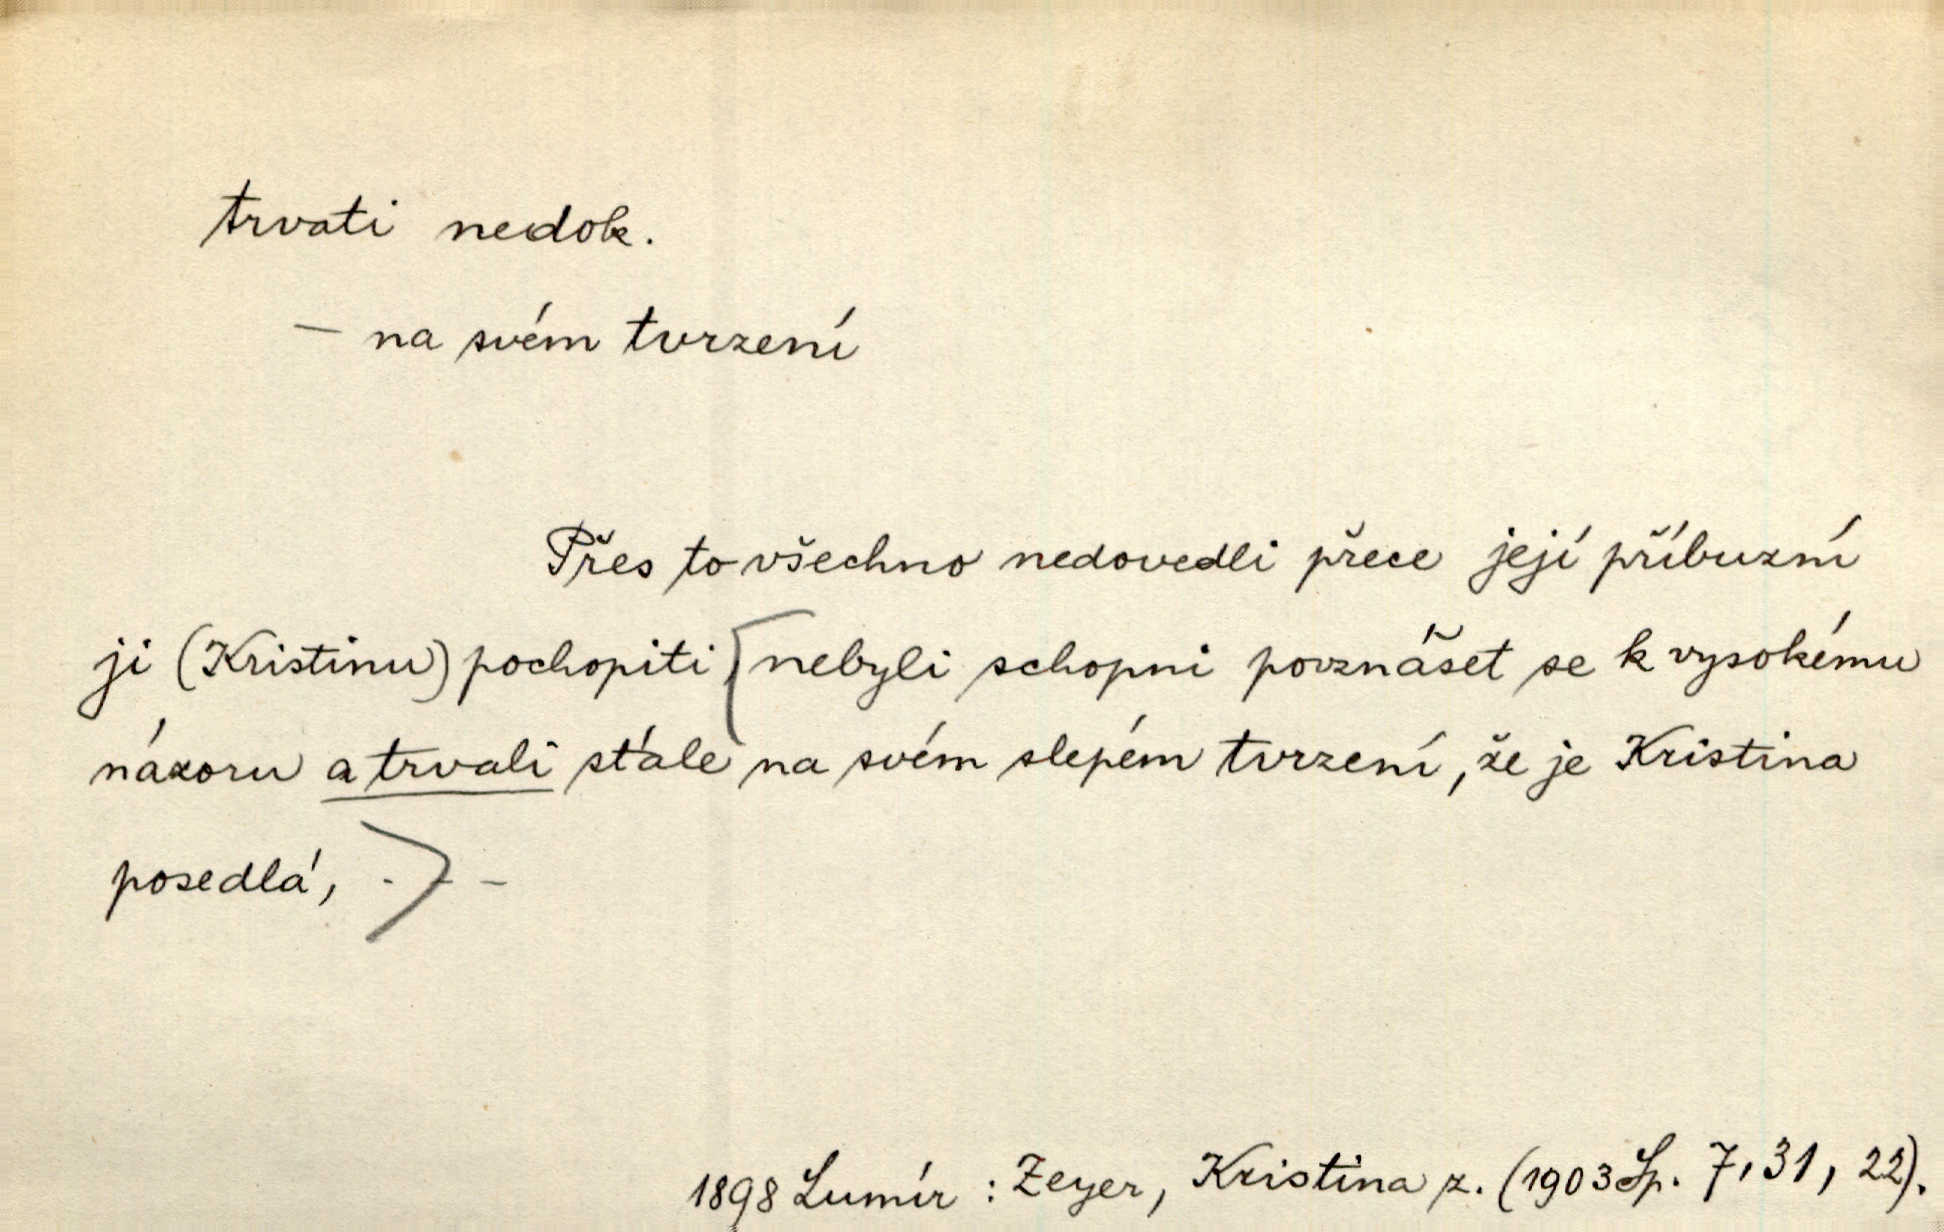 trvati nedok.
— na svém tvrzení
Přes to všechno nedovedli přece její příbuzní
ji (Kristinu) pochopiti [nebyli schopni povznášet se k vysokému
názoru a trvali stále na svém slepém tvrzení, že je Kristina
posedlá, - - -
1898 Lumír : Zeyer, Kristina z. (1903 Sp. 7, 31, 22).